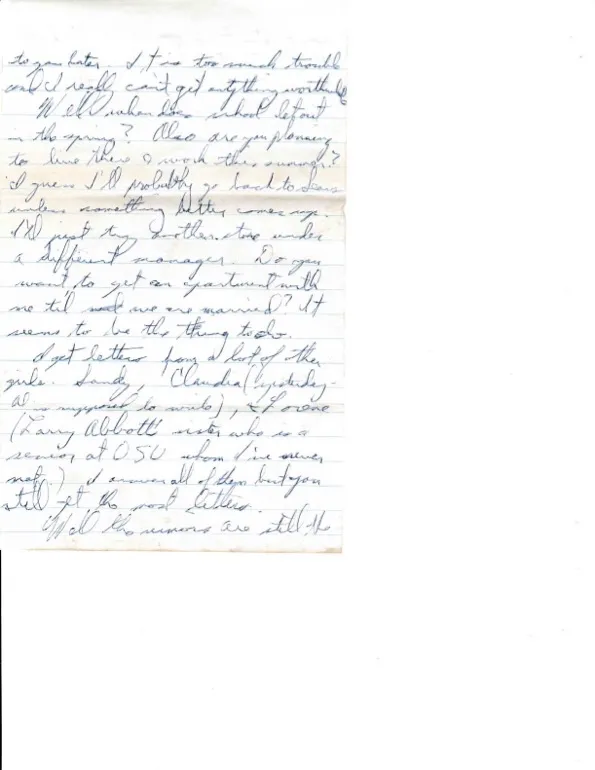 to you later. It is too much trouble
and I really can't get anything worthwhile
Well when does school let out
in the spring? Also are you planning
to live there & work this summer?
I guess I'll probably go back to Sears
unless something better comes up.
I'll just try another store under
a different manager. Do you
want to get an apartment with
me til we are married? It
seems to be the thing to do.
I get letters from a lot of other
girls. Sandy, Claudia (yesterday -
Al is supposed to write), & Lorene
(Larry Abbott's sister who is a
senior at OSU whom I've never
met.) I answer all of them but you
still get the most letters.
Well the rumors are still the